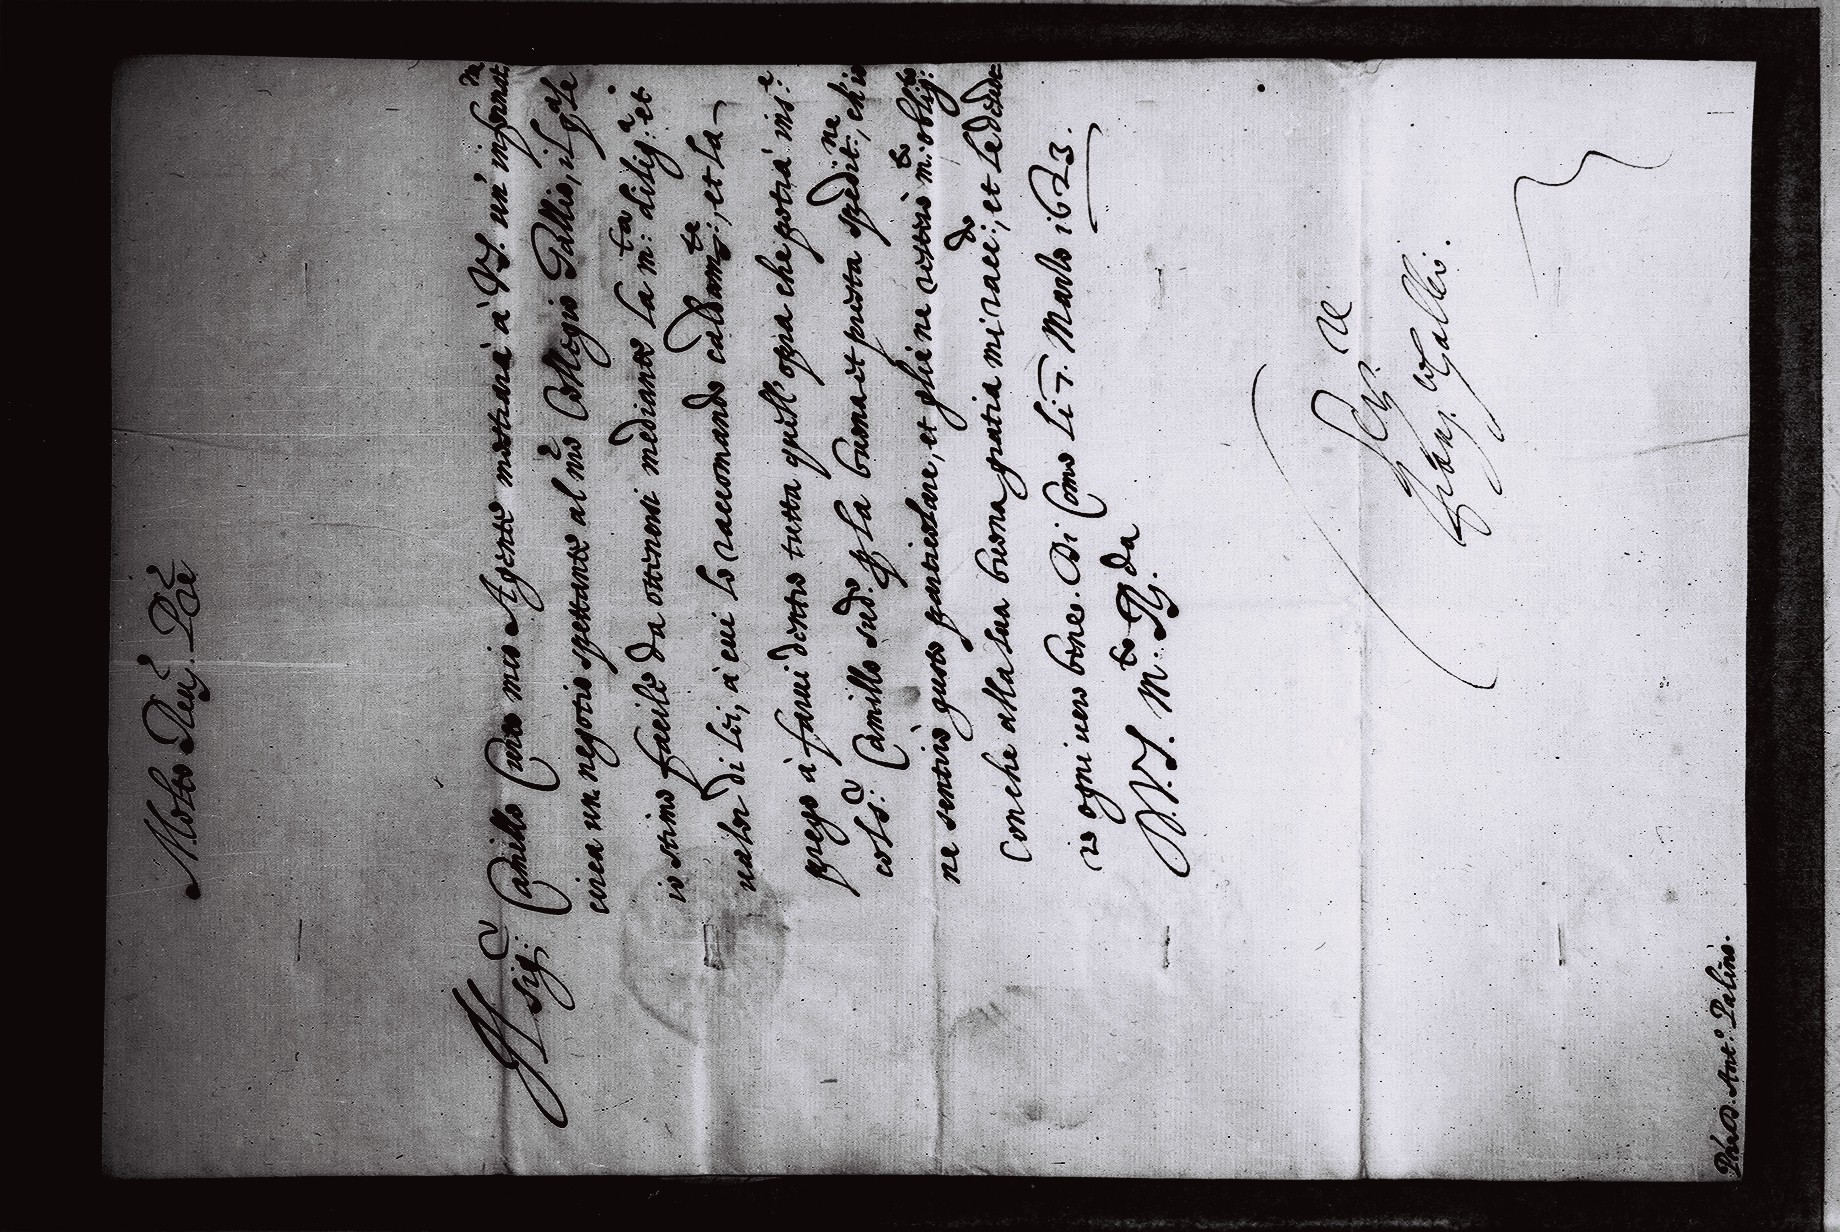 Molto Reu. Pre
Il sig.r Camillo Curio mio Agente mostrarà à V.S. un' informat.
circa un negotio spettante al mio Collegio Gallio, il qle
io stimo facile da ottenersi mediante la m.ta dilig.a et
ualor di lei, à cui lo raccomando caldam.te, et la
prego à farui dentro tutta quell' opra che potrà ins.e
col s.r Camillo sud.o p la buona et presta spedit.ne, ch'io
ne sentirò gusto particolare, et gliene restirò m.to oblig.to
Conche alla sua buona gratia mi racc.do, et le desid.
ro ogni uero bene. Di Como li 7. Marzo 1623.
D. V. S. M.to R.da
Ser.re
Franc.co Gallio.
P're D. Ant.o Palino.